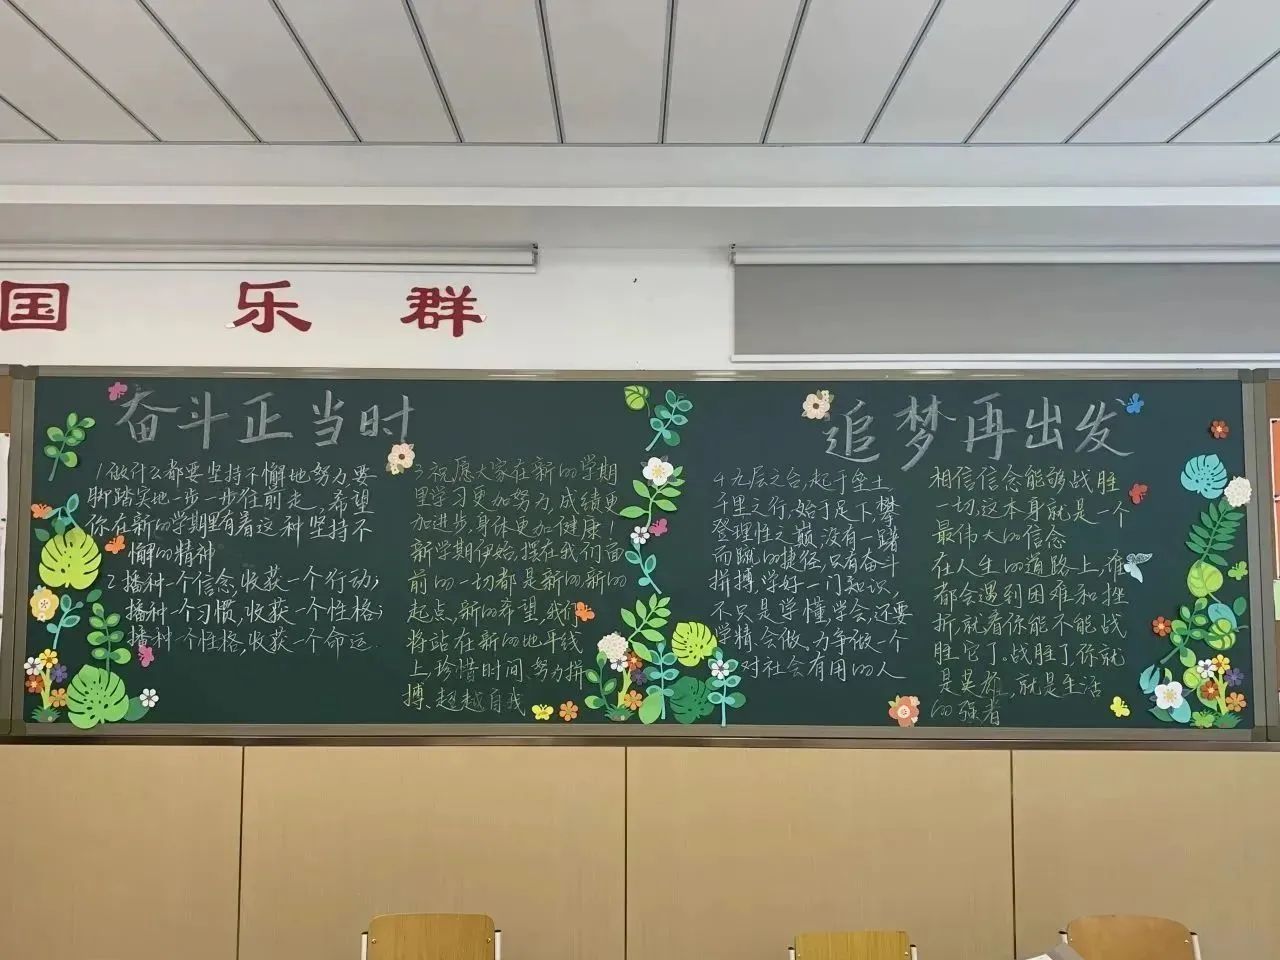 国 乐 群
奋斗正当时
1.做什么都要坚持不懈地努力要
脚踏实地一步一步往前走，希望
你在新的学期里有着这种坚持不
懈的精神
2.播种一个信念,收获一个行动；
播种一个习惯,收获一个性格；
播种一个性格,收获一个命运.
3.祝愿大家在新的学期
里学习更加努力,成绩更
加进步,身体更加健康!
新学期伊始,摆在我们面
前的一切都是新的新的
起点,新的希望,我们
将站在新的地平线
上,珍惜时间、努力拼
搏、超越自我
追梦再出发
4.九层之台,起于垒土
千里之行,始于足下,攀
登理性之巅,没有一蹴
而就的捷径,只有奋斗
拼搏,学好一门知识,
不只是学懂学会,还要
学精,会做。力争做一个
对社会有用的人
相信信念能够战胜
一切,这本身就是一个
最伟大的信念
在人生的道路上,谁
都会遇到困难和挫
折,就看你能不能战
胜它了。战胜了,你就
是英雄,就是生活
的强者